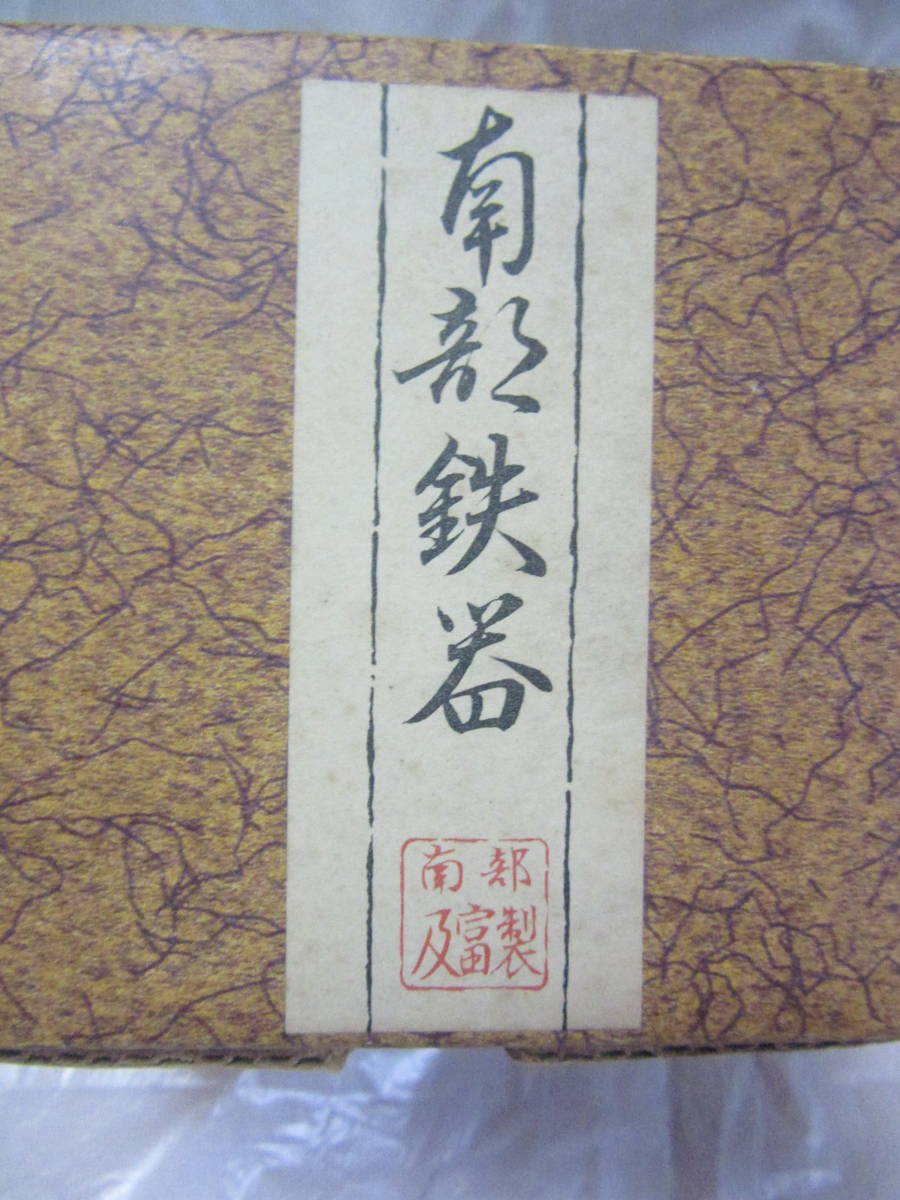 南部鉄器
南部
及富製